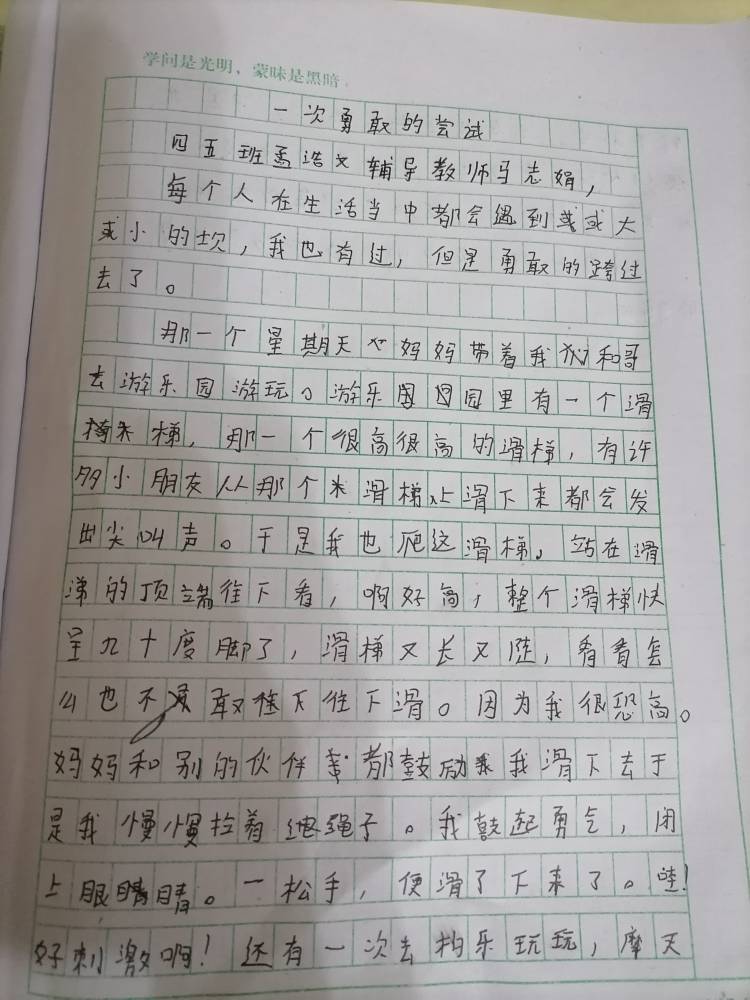 学问是光明，蒙昧是黑暗.
一次勇敢的尝试
四五班孟浩文辅导教师马志娟，
每个人在生活当中都会遇到或大
或小的坎，我也有过，但是勇敢的跨过
去了。
那一个星期天心妈妈带着我和哥
去游乐园游玩。游乐园里有一个滑
梯，那一个很高很高的滑梯，有许
多小朋友从那个滑梯上滑下来都会发
出尖叫声。于是我也爬这滑梯。站在滑
涕的顶端往下看，啊好高，整个滑梯快
呈九十度脚了，滑梯又长又陡，看看怎
么也不敢往下滑。因为我很恐高。
妈妈和别的伙伴都鼓励我滑下去于
是我慢慢拉着绳子。我鼓起勇气，闭
上眼睛。一松手，便滑了下来了。哇！
好刺激啊！还有一次去构乐玩玩，摩天